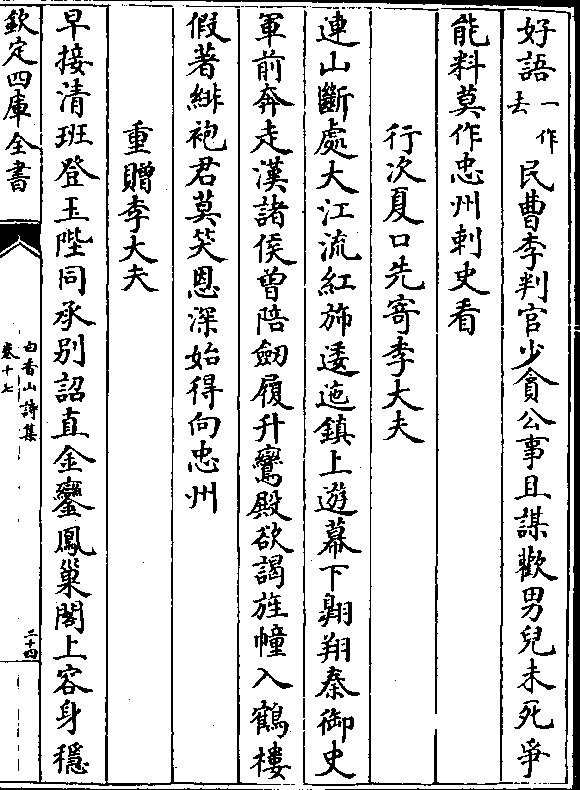 好語一作去民曹李判官少貪公事且謀歡男兒未死爭
能料莫作忠州刺史看
行次夏口先寄李大夫
連山斷處大江流紅斾逶迤鎮上遊幕下翺翔秦御史
軍前奔走漢諸侯曾陪劒履升鸞殿欲謁旌幢入鶴樓
假著緋袍君莫笑恩深始得向忠州
重贈李大夫
早接清班登玉陛同承别詔直金鑾鳳巢閣上容身穩
欽定四庫全書
白香山詩集
卷十七
二十四